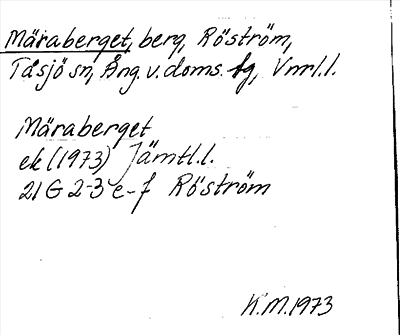 Märaberget, berg, Röström,
Tåsjö sn, Ång. v. doms. fg, Vnrl.l.
Märaberget
ek (1973) Jämtl.l.
21 G 2-3 e-f Röström
K.M. 1973